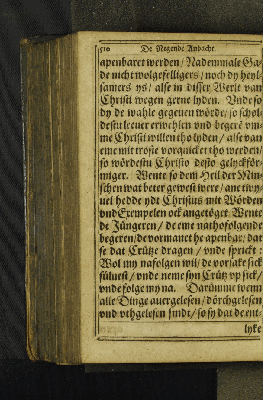 510 De Negende Andacht
apenbaret werden / Nademmale Ga-
de nicht wolgefelligers / noch dy heyl-
samers ys / alse in disser Werlt van
Christi wegen gerne lyden. Vnde so
dy de wahle gegeuen wörde / so schol-
destu leuer erwehlen vnd begerē vm-
me Christi willen tho lyden / alse van
eme mit troste vorquicket tho werden /
so wördestu Christo desto gelyckför-
miger. Wente so dem Heil der Min-
schen wat beter gewest were / ane twy-
uel hedde ydt Christus mit Wörden
vnd Exempelen ock angetöget. Wente
de Jüngeren / de eme nathofolgende
begeren / de vormanet he apenbar / dat
se dat Crütze dragen / vnde spricht :
Wol my nafolgen wil / de vorsake sick
süluest / vnde neme syn Crütz vp sick /
vnde folge my na. Darümme wenn
alle Dinge auergelesen / dörchgelesen
vnd vthgelesen sindt / so sy dat de ent-
lyke